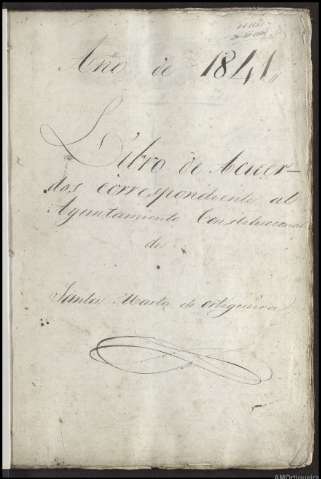 Año de 1841,
Libro de Acuer-
dos correspondiente al
Ayuntamiento Constitucional
de
Santa Marta de Ortigueira
AMOrtigueira